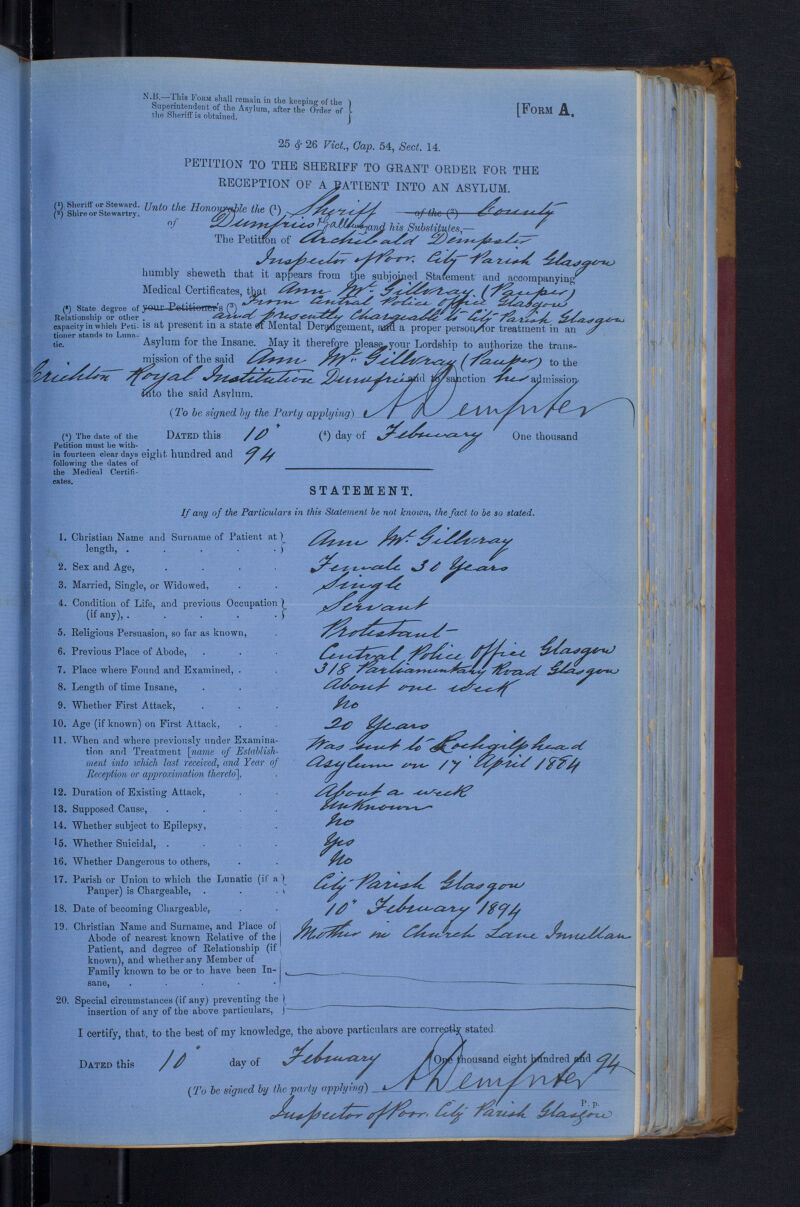 N.B.—This Form shall remain in the keeping of the
Superintendent of the Asylum, after the Order of
the Sheriff is obtained.
[Form A.
25 & 26 Vict., Cap. 54, Sect. 14.
PETITION TO THE SHERIFF TO GRANT ORDER FOR THE
RECEPTION OF A PATIENT INTO AN ASYLUM.
(¹) Sheriff or Steward.
(²) Shire or Stewartry.
Unto the Honourable the (¹) Sheriff of the (²) County
of Dumfries & Galloway and his Substitutes,—
The Petition of Archibald Dempster
Inspector of Poor. City Parish Glasgow
humbly sheweth that it appears from the subjoined Statement and accompanying
Medical Certificates, that Ann Mc Gillvray (Pauper)
(³) State degree of
Relationship or other
capacity in which Peti-
tioner stands to Luna-
tic.
your Petitioner's (³) From Central Police Office Glasgow
and presently Chargeable to City Parish Glasgow
is at present in a state of Mental Derangement, and a proper person for treatment in an
Asylum for the Insane. May it therefore please your Lordship to authorize the trans-
mission of the said Ann Mc Gillvray (Pauper) to the
Crichton Royal Institution Dumfries and to sanction her admission
into the said Asylum.
(To be signed by the Party applying) A Dempster
(⁴) The date of the
Petition must be with-
in fourteen clear days
following the dates of
the Medical Certifi-
cates.
Dated this 10" (⁴) day of February One thousand
eight hundred and 94
STATEMENT.
If any of the Particulars in this Statement be not known, the fact to be so stated.
1. Christian Name and Surname of Patient at
length, . . . . . Ann Mc Gillvray
2. Sex and Age, . . . . Female 30 Years
3. Married, Single, or Widowed, . . Single
4. Condition of Life, and previous Occupation
(if any), . . . . . Servant
5. Religious Persuasion, so far as known, . Protestant
6. Previous Place of Abode, . . . Central Police Office Glasgow
7. Place where Found and Examined, . . 318 Parliamentary Road Glasgow
8. Length of time Insane, . . . About one week
9. Whether First Attack, . . . No
10. Age (if known) on First Attack, . . 20 Years
11. When and where previously under Examina-
tion and Treatment [name of Establish-
ment into which last received, and Year of
Reception or approximation thereto]. .
Was sent to Lochgilphead
Asylum on 17 April 1884
12. Duration of Existing Attack, . . About a week
13. Supposed Cause, . . . . Unknown
14. Whether subject to Epilepsy, . No
15. Whether Suicidal, . . . . Yes
16. Whether Dangerous to others, . . No
17. Parish or Union to which the Lunatic (if a
Pauper) is Chargeable, . . . City Parish Glasgow
18. Date of becoming Chargeable, . . 10" February 1894
19. Christian Name and Surname, and Place of
Abode of nearest known Relative of the
Patient, and degree of Relationship (if
known), and whether any Member of
Family known to be or to have been In-
sane, . . . . .
Mother in Church Lane Innellan
20. Special circumstances (if any) preventing the
insertion of any of the above particulars,
I certify, that, to the best of my knowledge, the above particulars are correctly stated
Dated this 10" day of February One thousand eight hundred and 94
(To be signed by the party applying) A Dempster
P. p.
Inspector of Poor. City Parish Glasgow